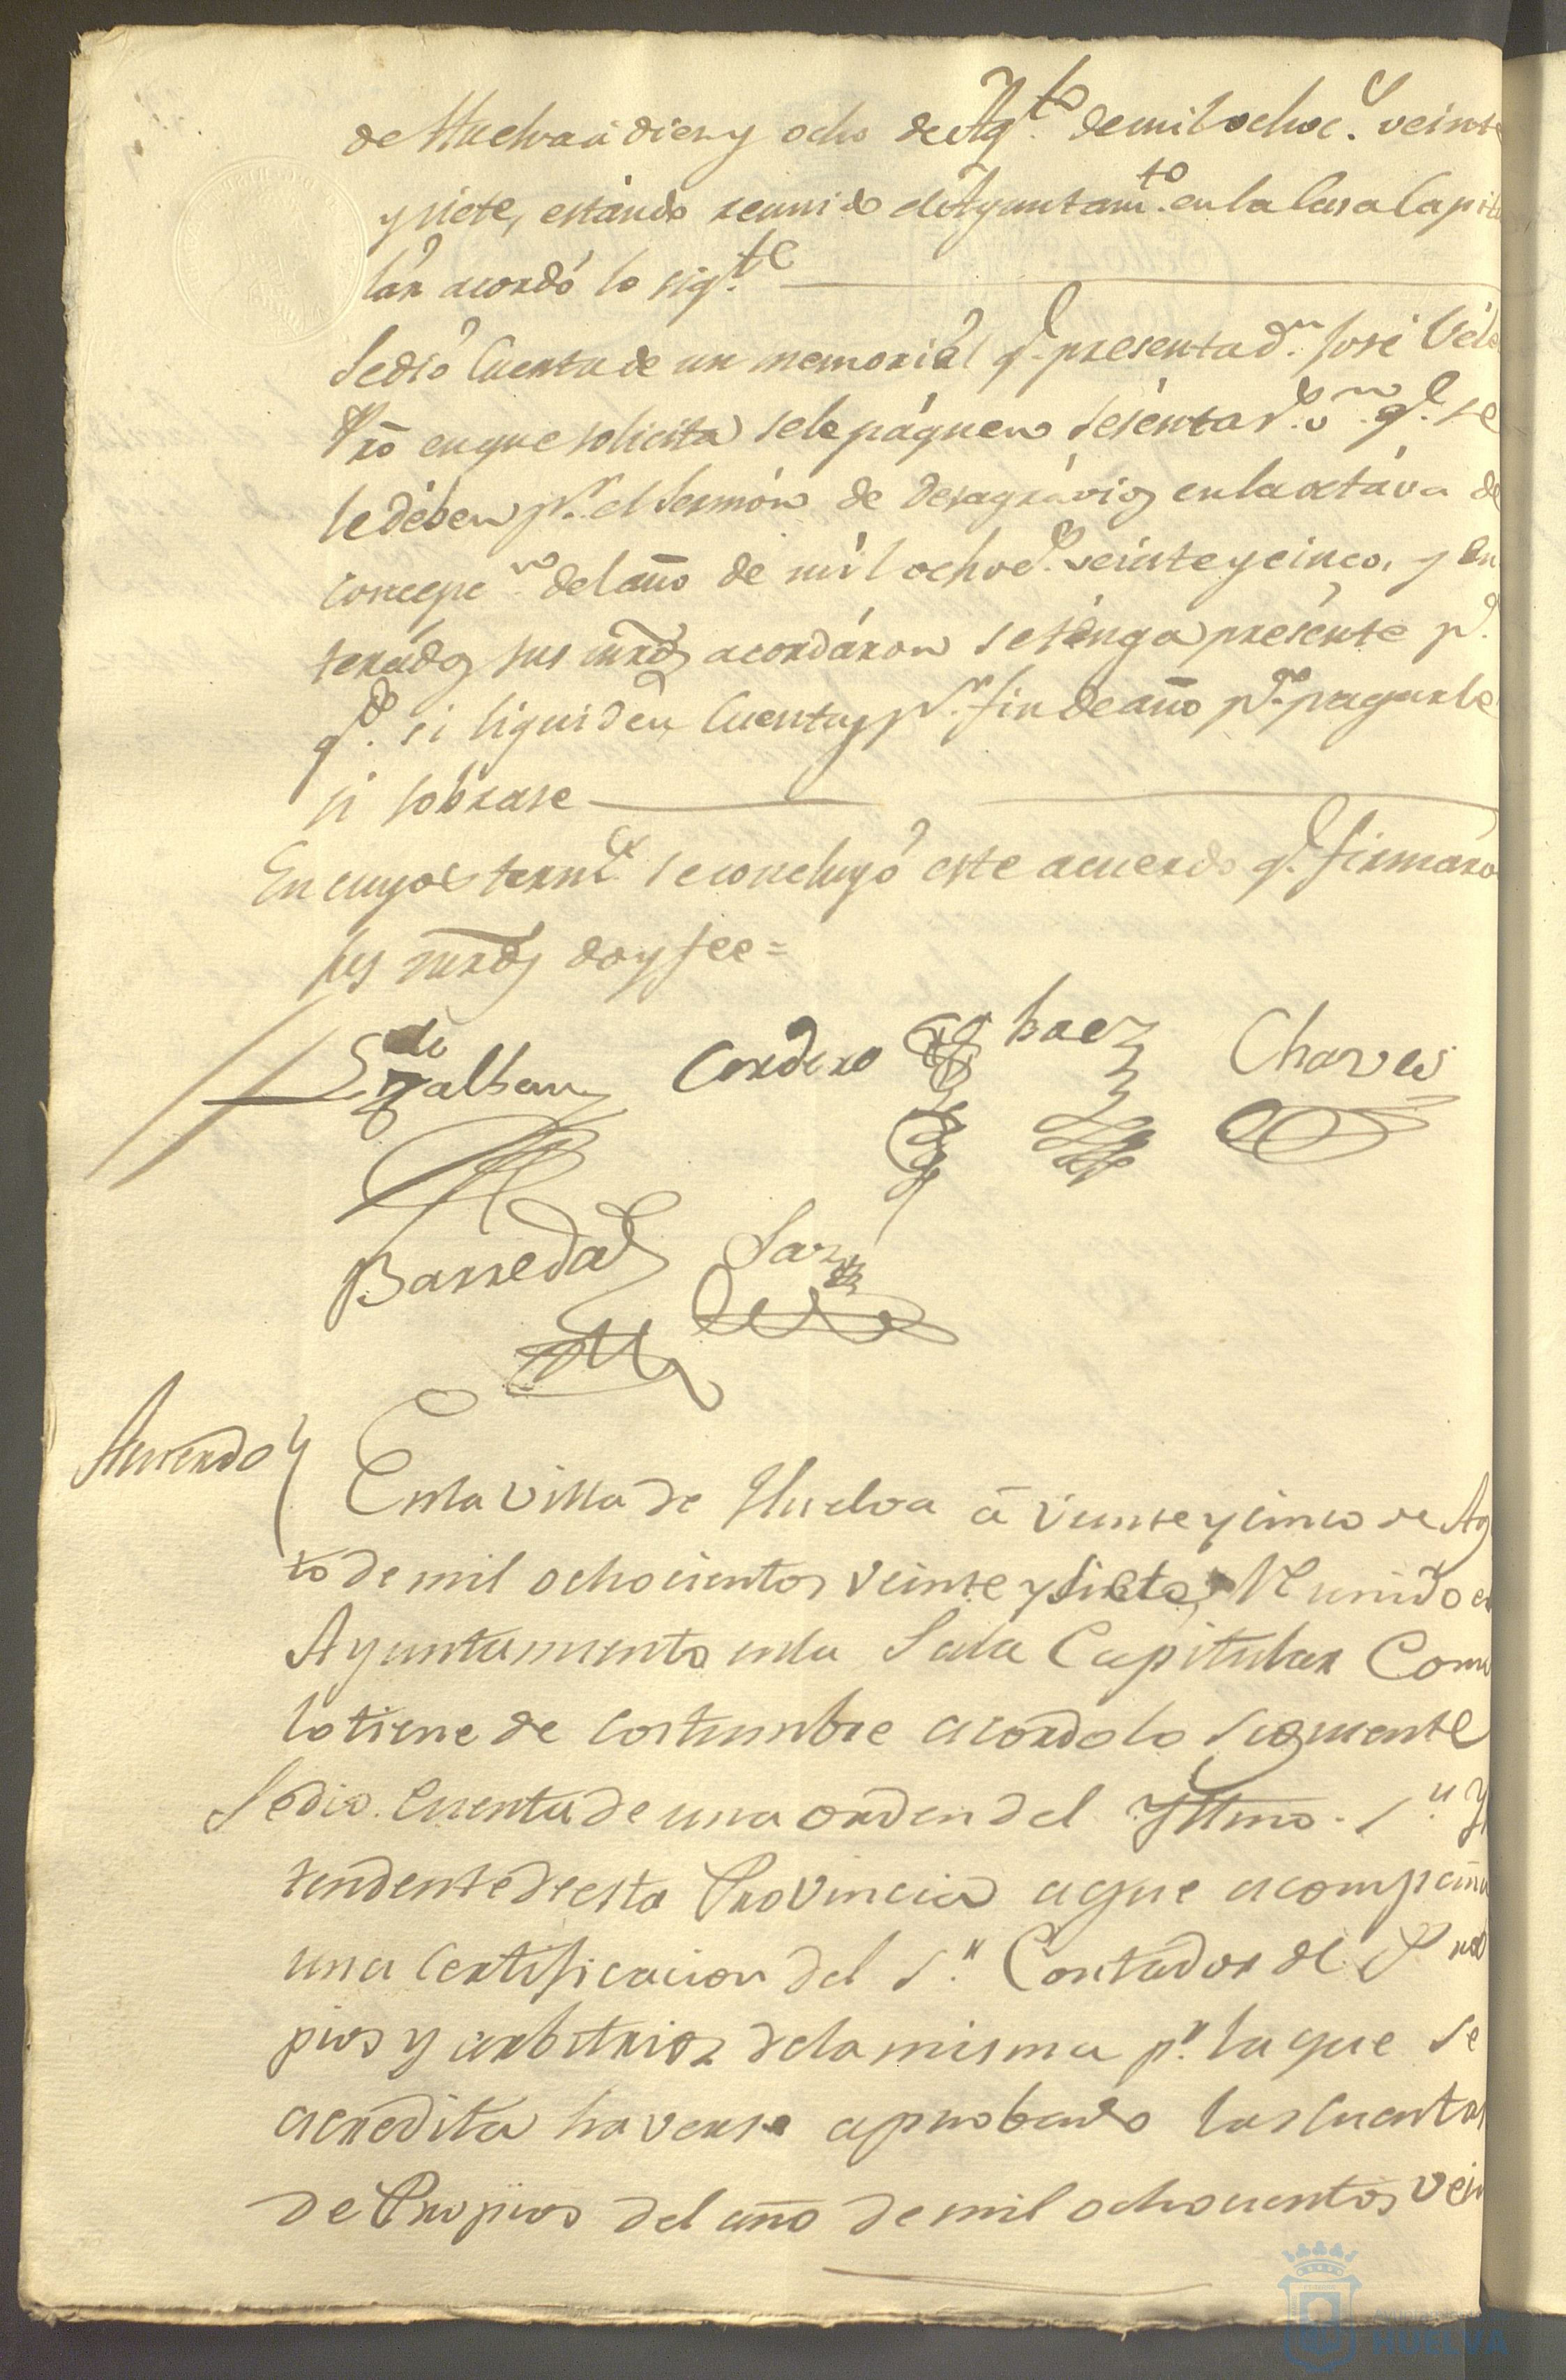 de Huelva á diez y ocho de Agto. de mil ochoc.s veinte
y siete, estándo reunido el Ayuntam.to en la Casa Capitu
lár acordó lo sig.te
Se dió Cuenta de un memoriál q.e presenta d.n José Véle
Pro en que solicita se le páguen sesénta r.s v.n q.e se
le dében p.r el Sermón de desagrávios en la octáva de
concepc.on del año de mil ochoc.s veinte y cinco, y en
terádos sus mrds acordáron se ténga presénte p.a
q.do si liquiden Cuentas p.r fin de año p.a pagarle
si sobrase
En cuyos term.s se concluyó este acuerdo q.e firmaro
sus mrds doy fee =
Cordero Baez Chaves
Barreda
Acuerdo
En la villa de Huelva á veinte y cinco de Ag
to de mil ochocientos veinte y siete, Reunido el
Ayuntamiento en la Sala Capitular Como
lo tiene de costumbre acordo lo siguiente
Se dio Cuenta de una orden del Yltmo. S.r Yn
tendente de esta Provincia a que acompaña
una Certificacion del S.r Contador de Pro
pios y arbitrios de la misma p.r la que se
acredita haverse aprobado las Cuentas
de Propios del año de mil ochocientos vein
HUELVA